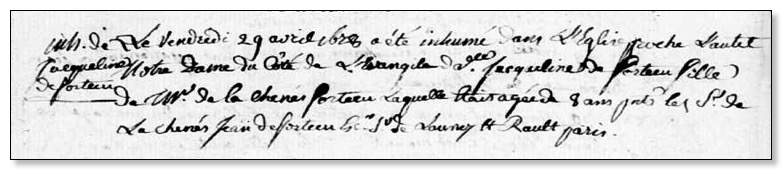 inh. de Le Vendredi 29 avril 1678 a été inhumé dans L'Eglise proche L'autel
Jacqueline Notre Dame du Côté de L'Evangile d'elle Jacqueline de Porteen fille
de Porteen de Mr de la Chenés Porteen Laquelle Etait agée de 8 ans pnts les Sr de
La Chenés Jean de Porteen Sr de Launey et Rault paris.